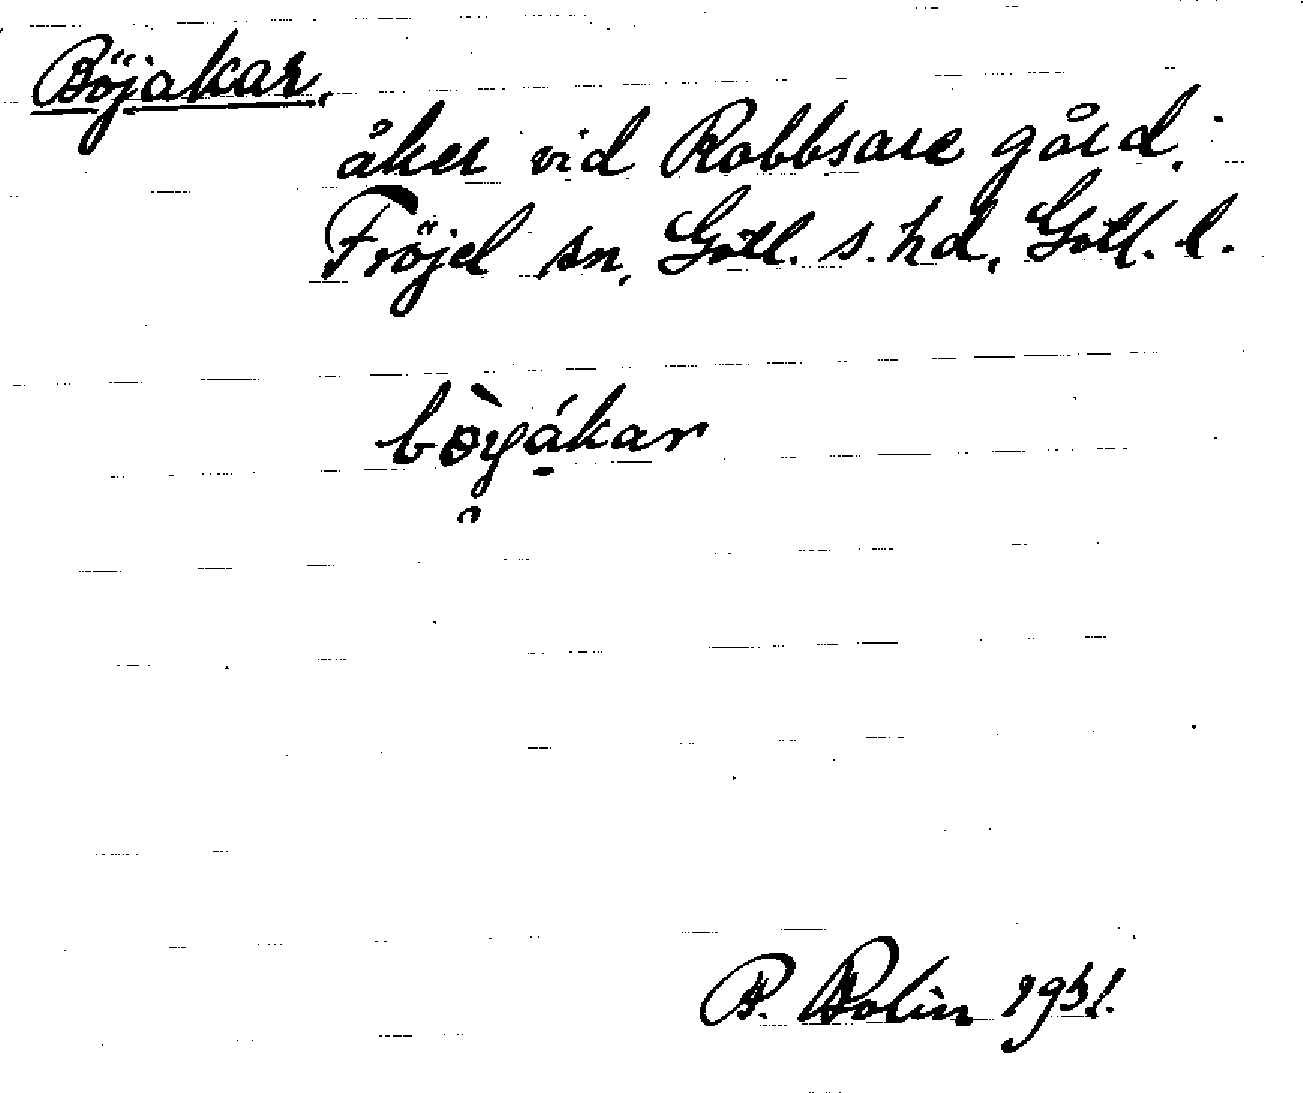 Böjakar.
åker vid Robbsare gård.
Fröjel sn, Gotl. s. hd, Gotl. l.
bòyákar
1931.